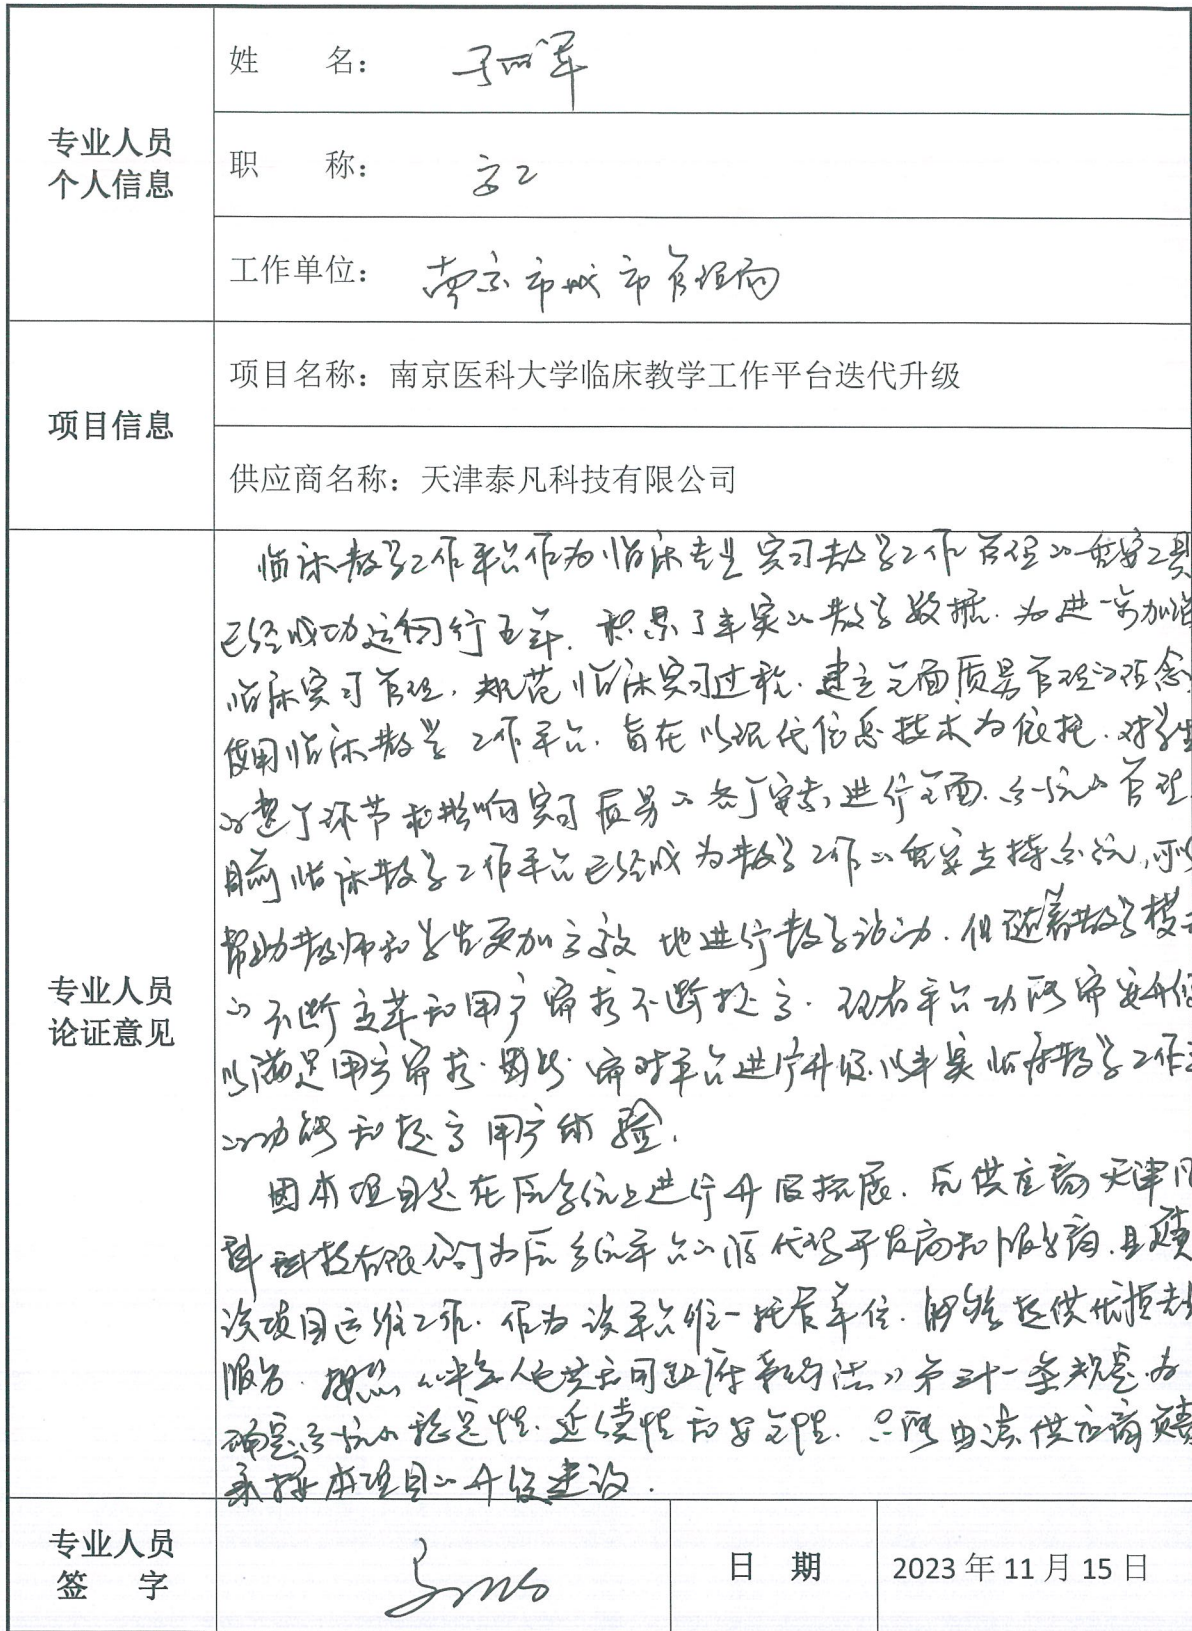 专业人员
个人信息
姓 名：
职 称： 高工
工作单位： 南京市城市管理局
项目信息
项目名称：南京医科大学临床教学工作平台迭代升级
供应商名称：天津泰凡科技有限公司
专业人员
论证意见
临床教学工作平台作为临床专业实习教学工作管理的重要工具
已经成功运行五年，积累了丰实的教学数据．为进一步加强
临床实习管理，规范临床实习过程，建立全面质量管理的理念，
使用临床教学工作平台，旨在以现代信息技术为依托，对学生
的整个环节和影响实习质量的各个要素进行全面、系统的管理．
目前临床教学工作平台已经成为教学工作的重要支持系统，可以
帮助教师和学生更加高效地进行教学活动．但随着教学模
的不断变革和用户需求不断提高．现有平台功能需要升级
以满足用户需求．因此需对平台进行升级，以丰实临床教学工作
的功能和提高用户体验．
因本项目是在原系统上进行升级拓展，原供应商天津
科技有限公司为原系统平台的源代码开发商和服务商，且负责
该项目运维工作．作为该平台唯一托管单位，能够提供优质
服务．按照《中华人民共和国政府采购法》第三十一条规定，为
确定系统的稳定性、延续性和安全性．只能由该供应商负责
承接本项目的升级建设．
专业人员
签 字
日 期
2023 年 11 月 15 日